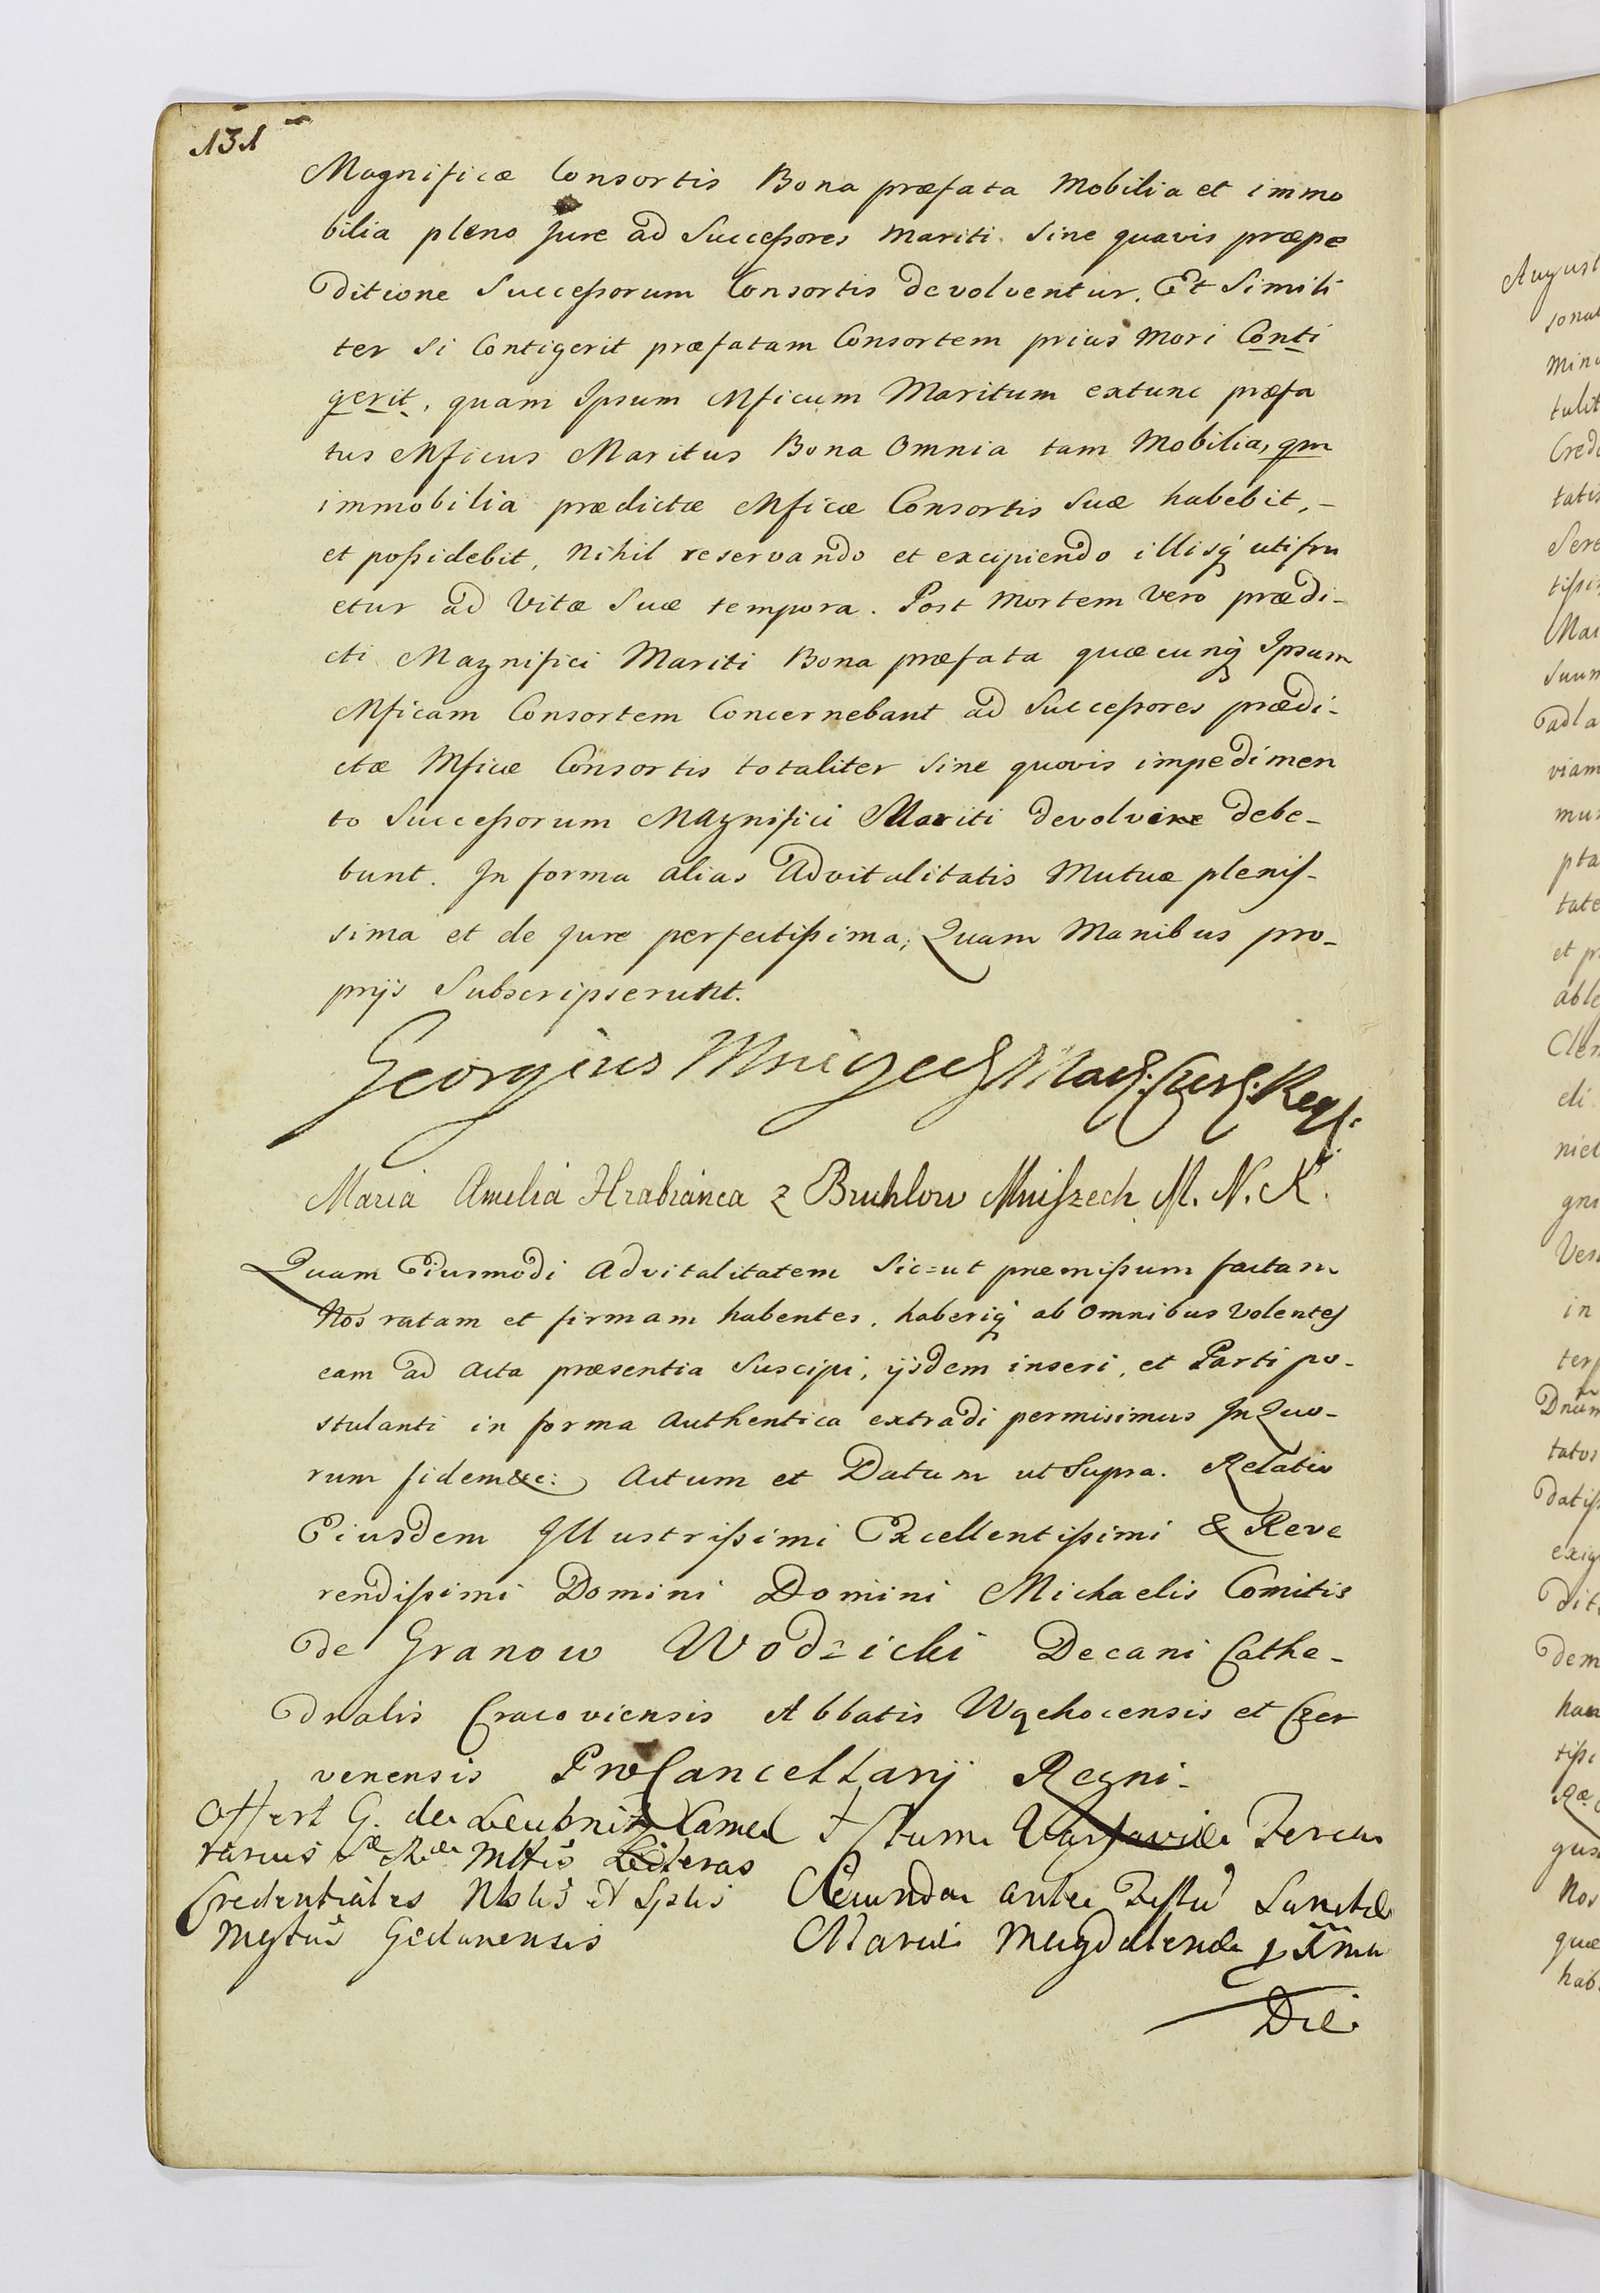 131
Magnificæ Consortis Bona præfata Mobilia et immo
bilia pleno Jure ad Successores Mariti sine quavis præpe
ditione Successorum Consortis devolventur. Et Simili
ter si Contigerit præfatam Consortem prius Mori Conti
gerit, quam Ipsum Mficum Maritum extunc præfa
tus Mficus Maritus Bona Omnia tam Mobilia, qm
immobilia prædictæ Mficæ Consortis Suæ habebit,-
et possidebit, Nihil reservando et excipiendo illisq utifru
etur ad Vitæ Suæ tempora. Post Mortem Vero prædi-
cti Magnifici Mariti Bona præfata quæcunq Ipsam
Mficam Consortem Concernebant ad Successores prædi-
ctæ Mficæ Consortis totaliter sine quovis impedimen
to Successorum Magnifici Mariti devolvere debe-
bunt. In forma alias Advitalitatis Mutuæ plenis-
sima et de jure perfectissima, Quam Manibus pro-
prijs Subscripserunt.
Georgius Mniszech Mach. Curh. Regh.
Maria Amelia Hrabianca z Bruhlow Mniszech M. N. K.
Quam Eiusmodi Advitalitatem Sic=ut præmissum factam
Nos ratam et firmam habentes, haberiq ab Omnibus Volentes
eam ad Acta præsentia Suscipi, ijsdem inseri, et Parti po-
stulanti in forma Authentica extradi permisimus In Quo-
rum fidem &c: Actum et Datum ut Supra. Relatio
Eiusdem Illustrissimi Excellentissimi & Reve
rendissimi Domini Domini Michaelis Comitis
de Granow Wodzicki Decani Cathe-
dralis Cracoviensis Abbatis Wąchocensis et Czer
venensis ProCancellarij Regni-
Offert G. de Leubnitz Came
rarius Sæ Ræ Mttis Literas
Credentiales Nobis et Sptlis
Mgtus Gedanensis
Actum Varsaviæ Feria
Secunda ante Festu Sanctæ
Mariæ Magdalenæ pxima
Die
August
sonal
mino
tulit
Cred
tatis
Sere
tissi
Mai
Suum
adla
viam
mus
pta
tate
et pr
able
Clem
eli
niet
gni
Ves
in
ter
Dnum
tator
datis
exig
dit
dem
han
tissi
Ræ
gus
Nos
quæ
hab